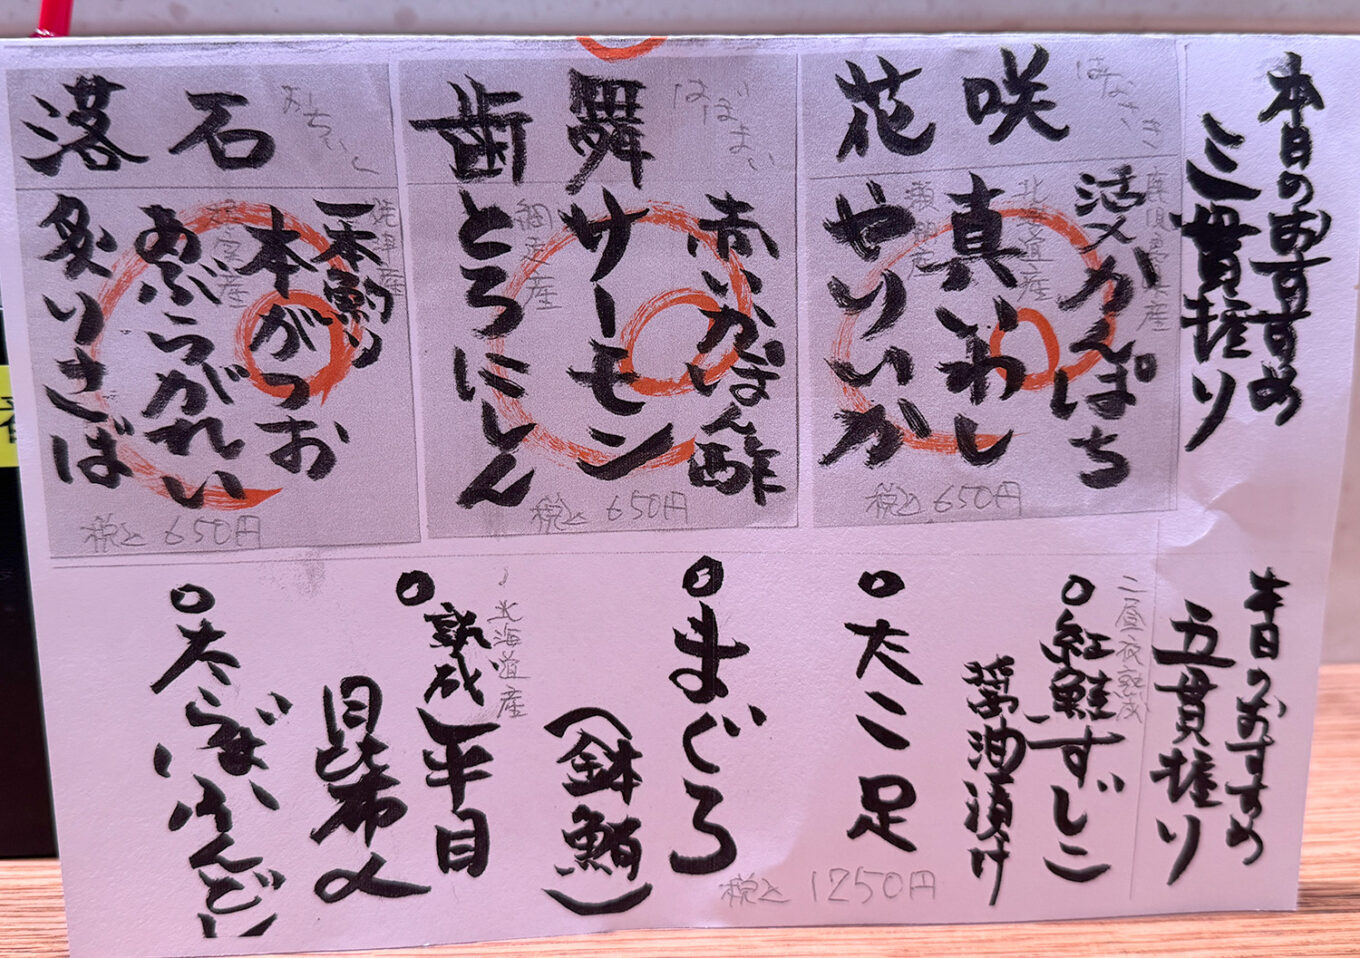 本日のおすすめ
三貫握り
はなさき
咲
花
鹿児島県産
活〆かんぱち
北海道産
真いわし
瀬戸内産
やりいか
税込 650円
はぼまい
舞
歯
赤いかぽん酢
サーモン
網走産
とろにしん
税込 650円
おちいし
石
落
焼津産
一本釣り
本がつお
あぶらがれい
炙りさば
税込 650円
本日のおすすめ
五貫握り
二昼夜熟成
紅鮭すじこ
醤油漬け
大こ足
まぐろ
(鉢鮪)
北海道産
熟成平目
昆布〆
税込 1250円